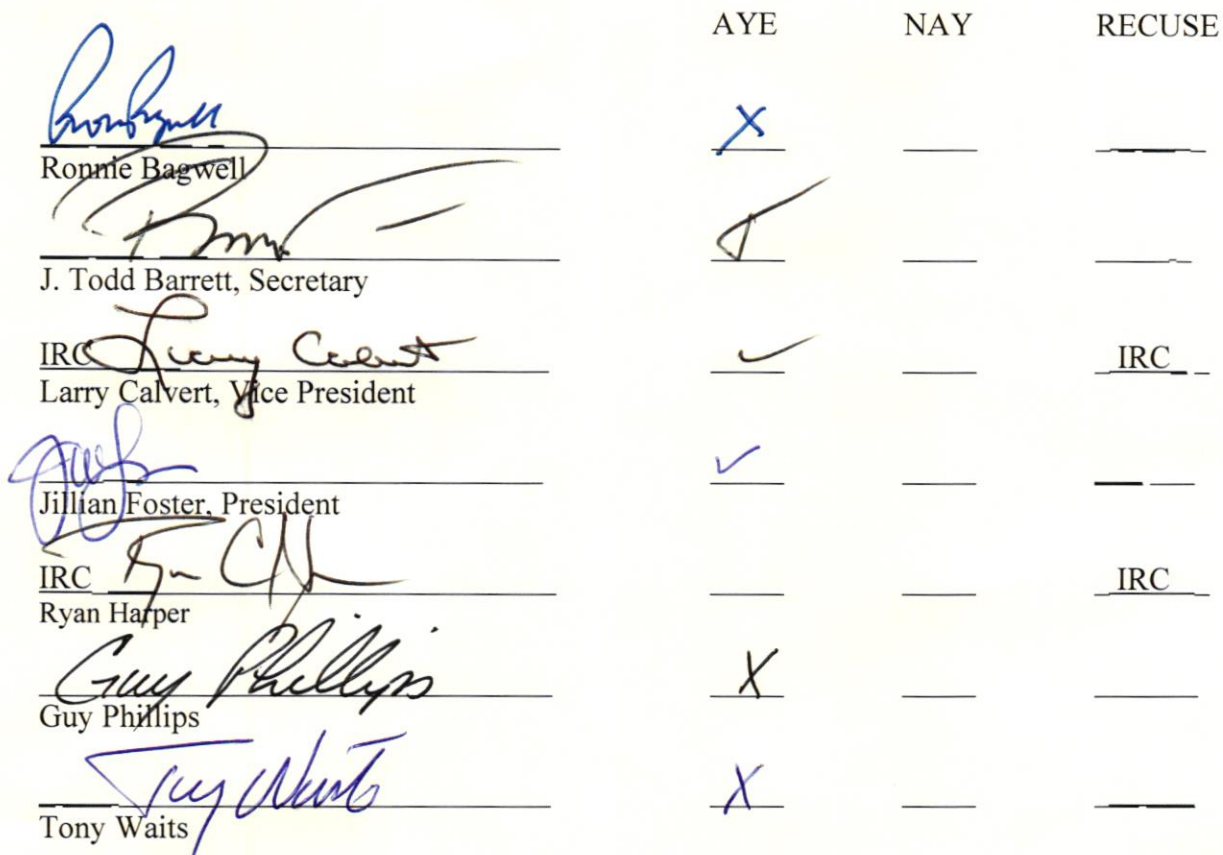 AYE NAY RECUSE
X
Ronnie Bagwell
J. Todd Barrett, Secretary
IRC Larry Calvert ✓ IRC
Larry Calvert, Vice President
✓
Jillian Foster, President
IRC IRC
Ryan Harper
Guy Phillips X
Guy Phillips
Tony Waits X
Tony Waits